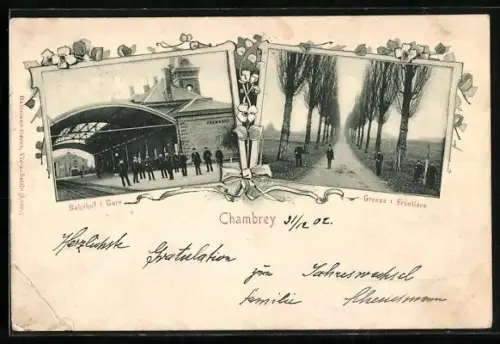 CHAMBREY
Bahnhof : Gare
Grenze : Frontière
Chambrey 31/12 02.
Herzlichste Gratulation zum Jahreswechsel
Familie